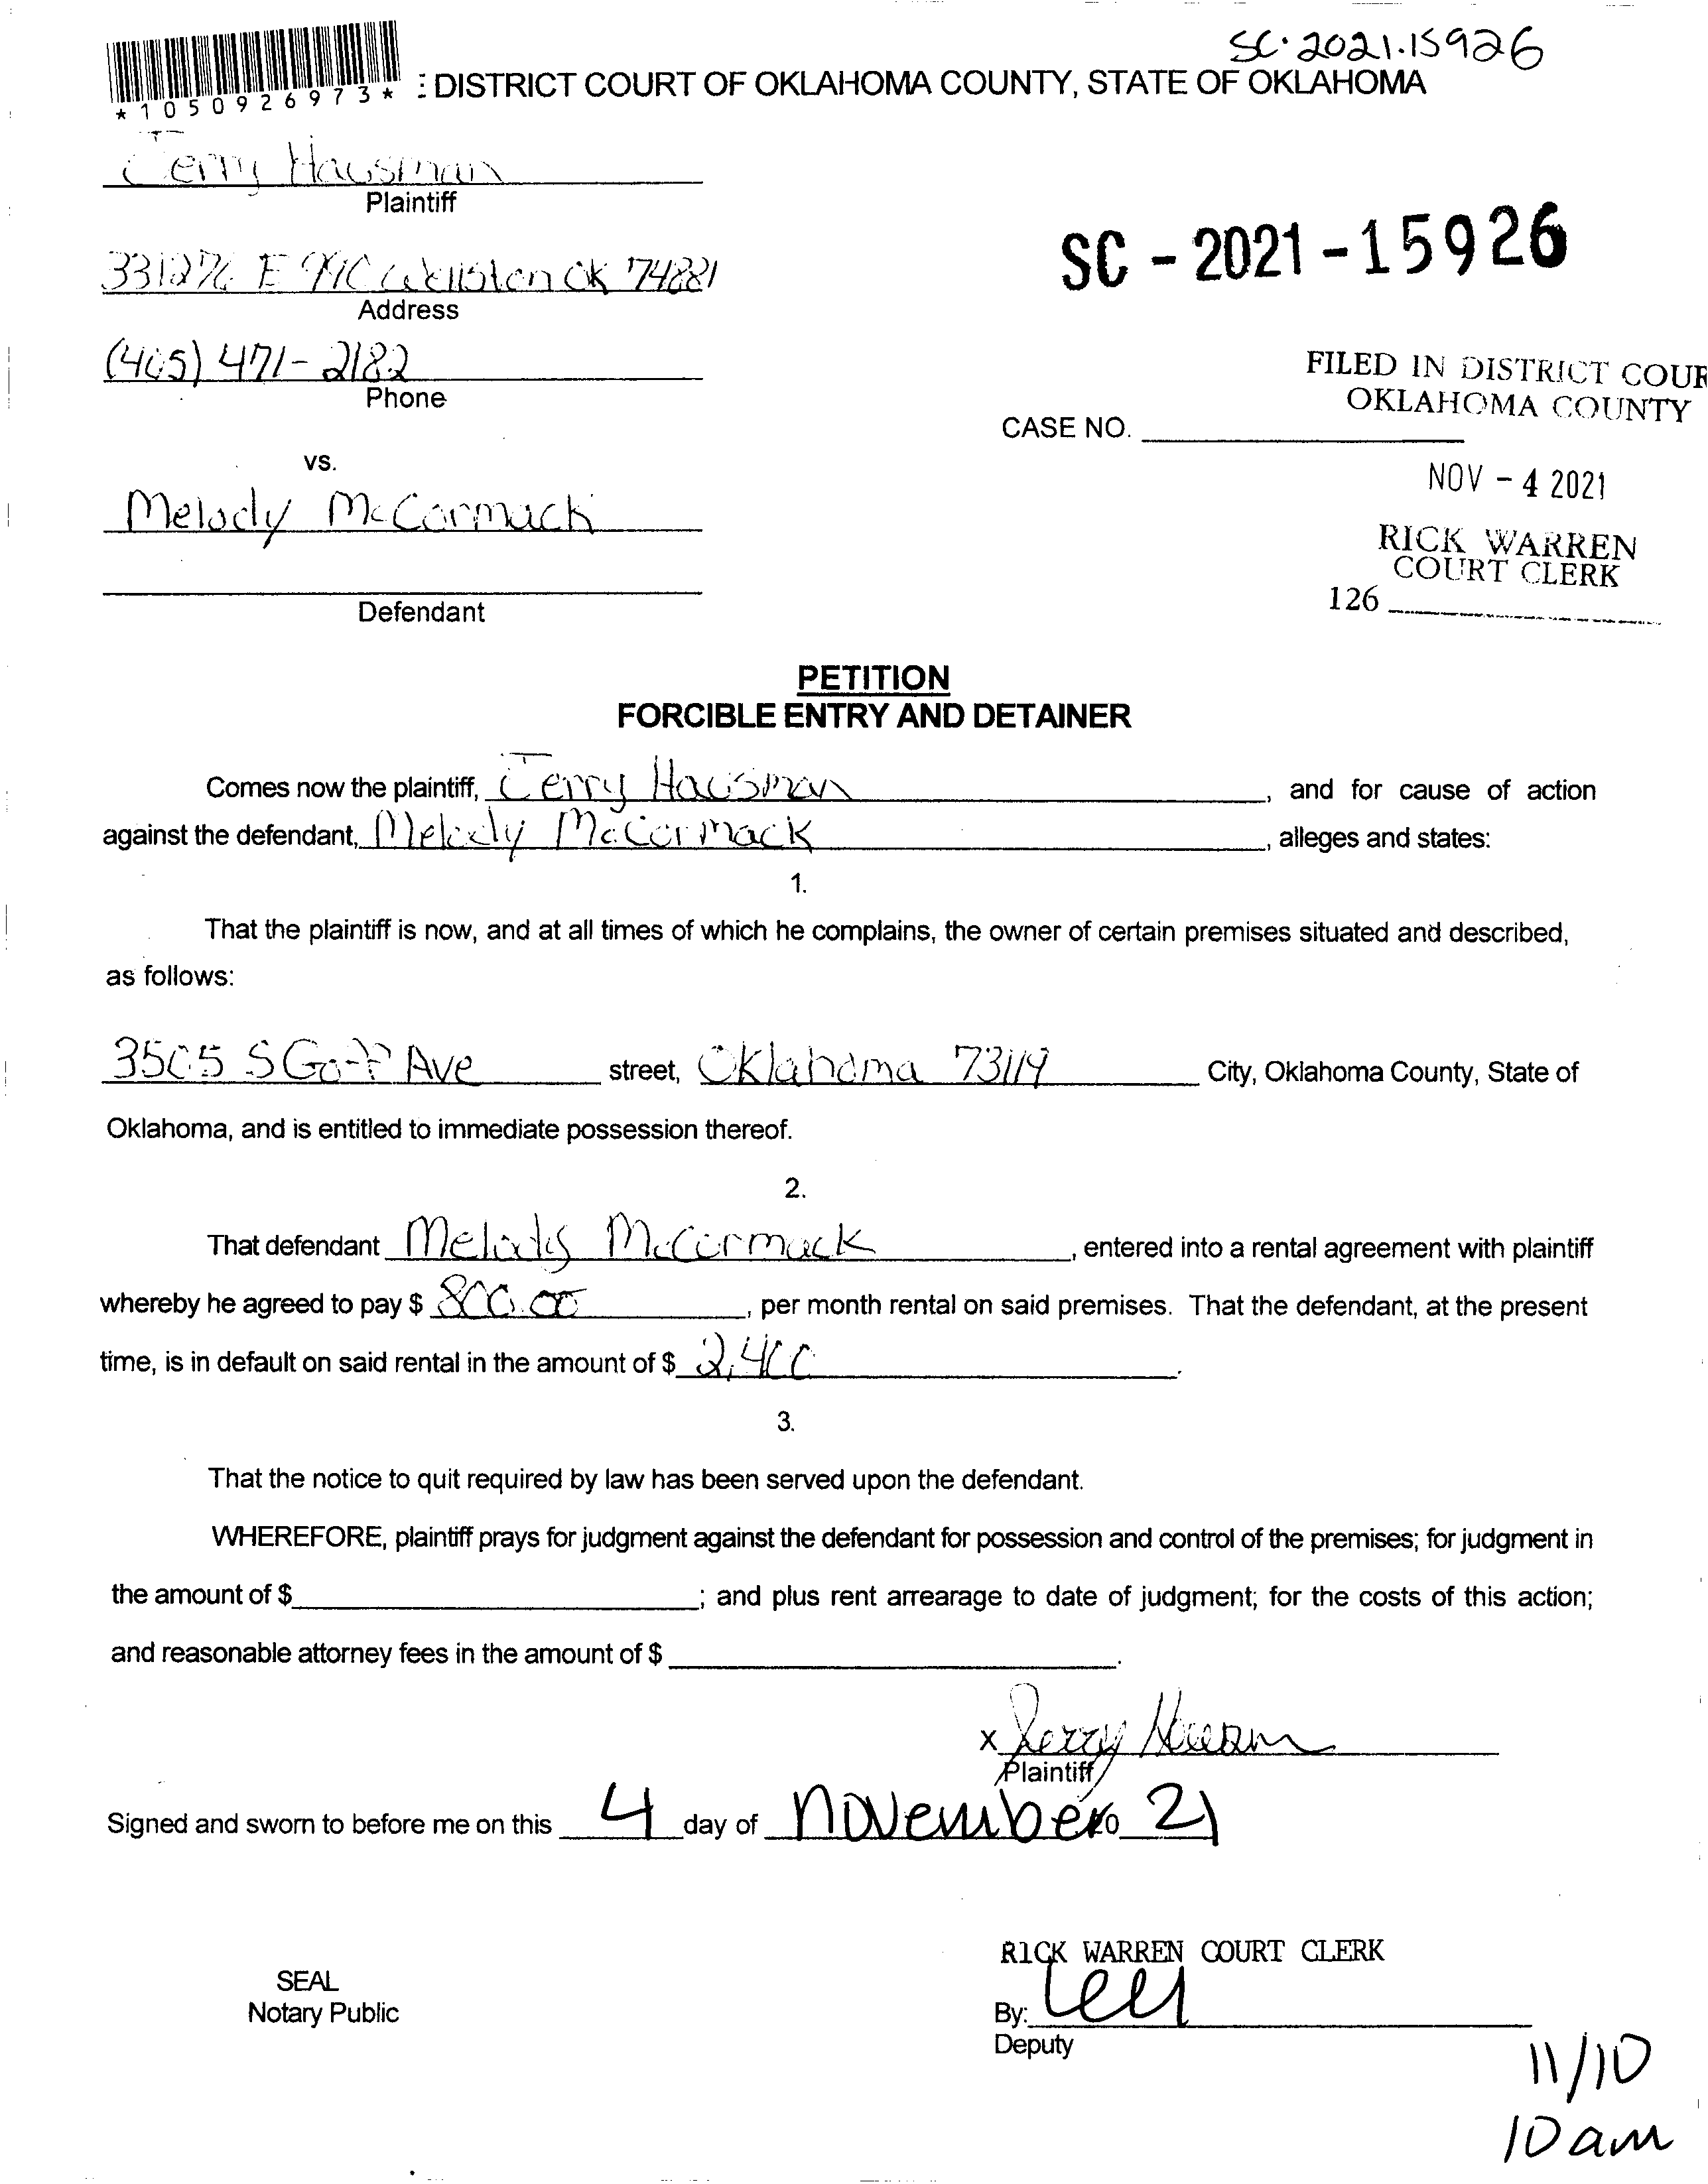 SC·2021·15926
*1050926973* : DISTRICT COURT OF OKLAHOMA COUNTY, STATE OF OKLAHOMA
Jerry Hausman
Plaintiff
331276 E Wellston OK 74881
Address
SC - 2021 - 15926
(405) 471-2182
Phone
FILED IN DISTRICT COUR
OKLAHOMA COUNTY
CASE NO.
vs.
NOV - 4 2021
Melody McCormack
RICK WARREN
COURT CLERK
126
Defendant
PETITION
FORCIBLE ENTRY AND DETAINER
Comes now the plaintiff, Jerry Hausman, and for cause of action
against the defendant, Melody McCormack, alleges and states:
1.
That the plaintiff is now, and at all times of which he complains, the owner of certain premises situated and described,
as follows:
3505 S Goff Ave street, Oklahoma 73119 City, Oklahoma County, State of
Oklahoma, and is entitled to immediate possession thereof.
2.
That defendant Melody McCormack, entered into a rental agreement with plaintiff
whereby he agreed to pay $ 800.00, per month rental on said premises. That the defendant, at the present
time, is in default on said rental in the amount of $ 2,400.
3.
That the notice to quit required by law has been served upon the defendant.
WHEREFORE, plaintiff prays for judgment against the defendant for possession and control of the premises; for judgment in
the amount of $ ; and plus rent arrearage to date of judgment; for the costs of this action;
and reasonable attorney fees in the amount of $ .
x Jerry Hausman
Plaintiff
Signed and sworn to before me on this 4 day of November 20 21
RICK WARREN COURT CLERK
SEAL
Notary Public
By:
Deputy
11/10
10 am